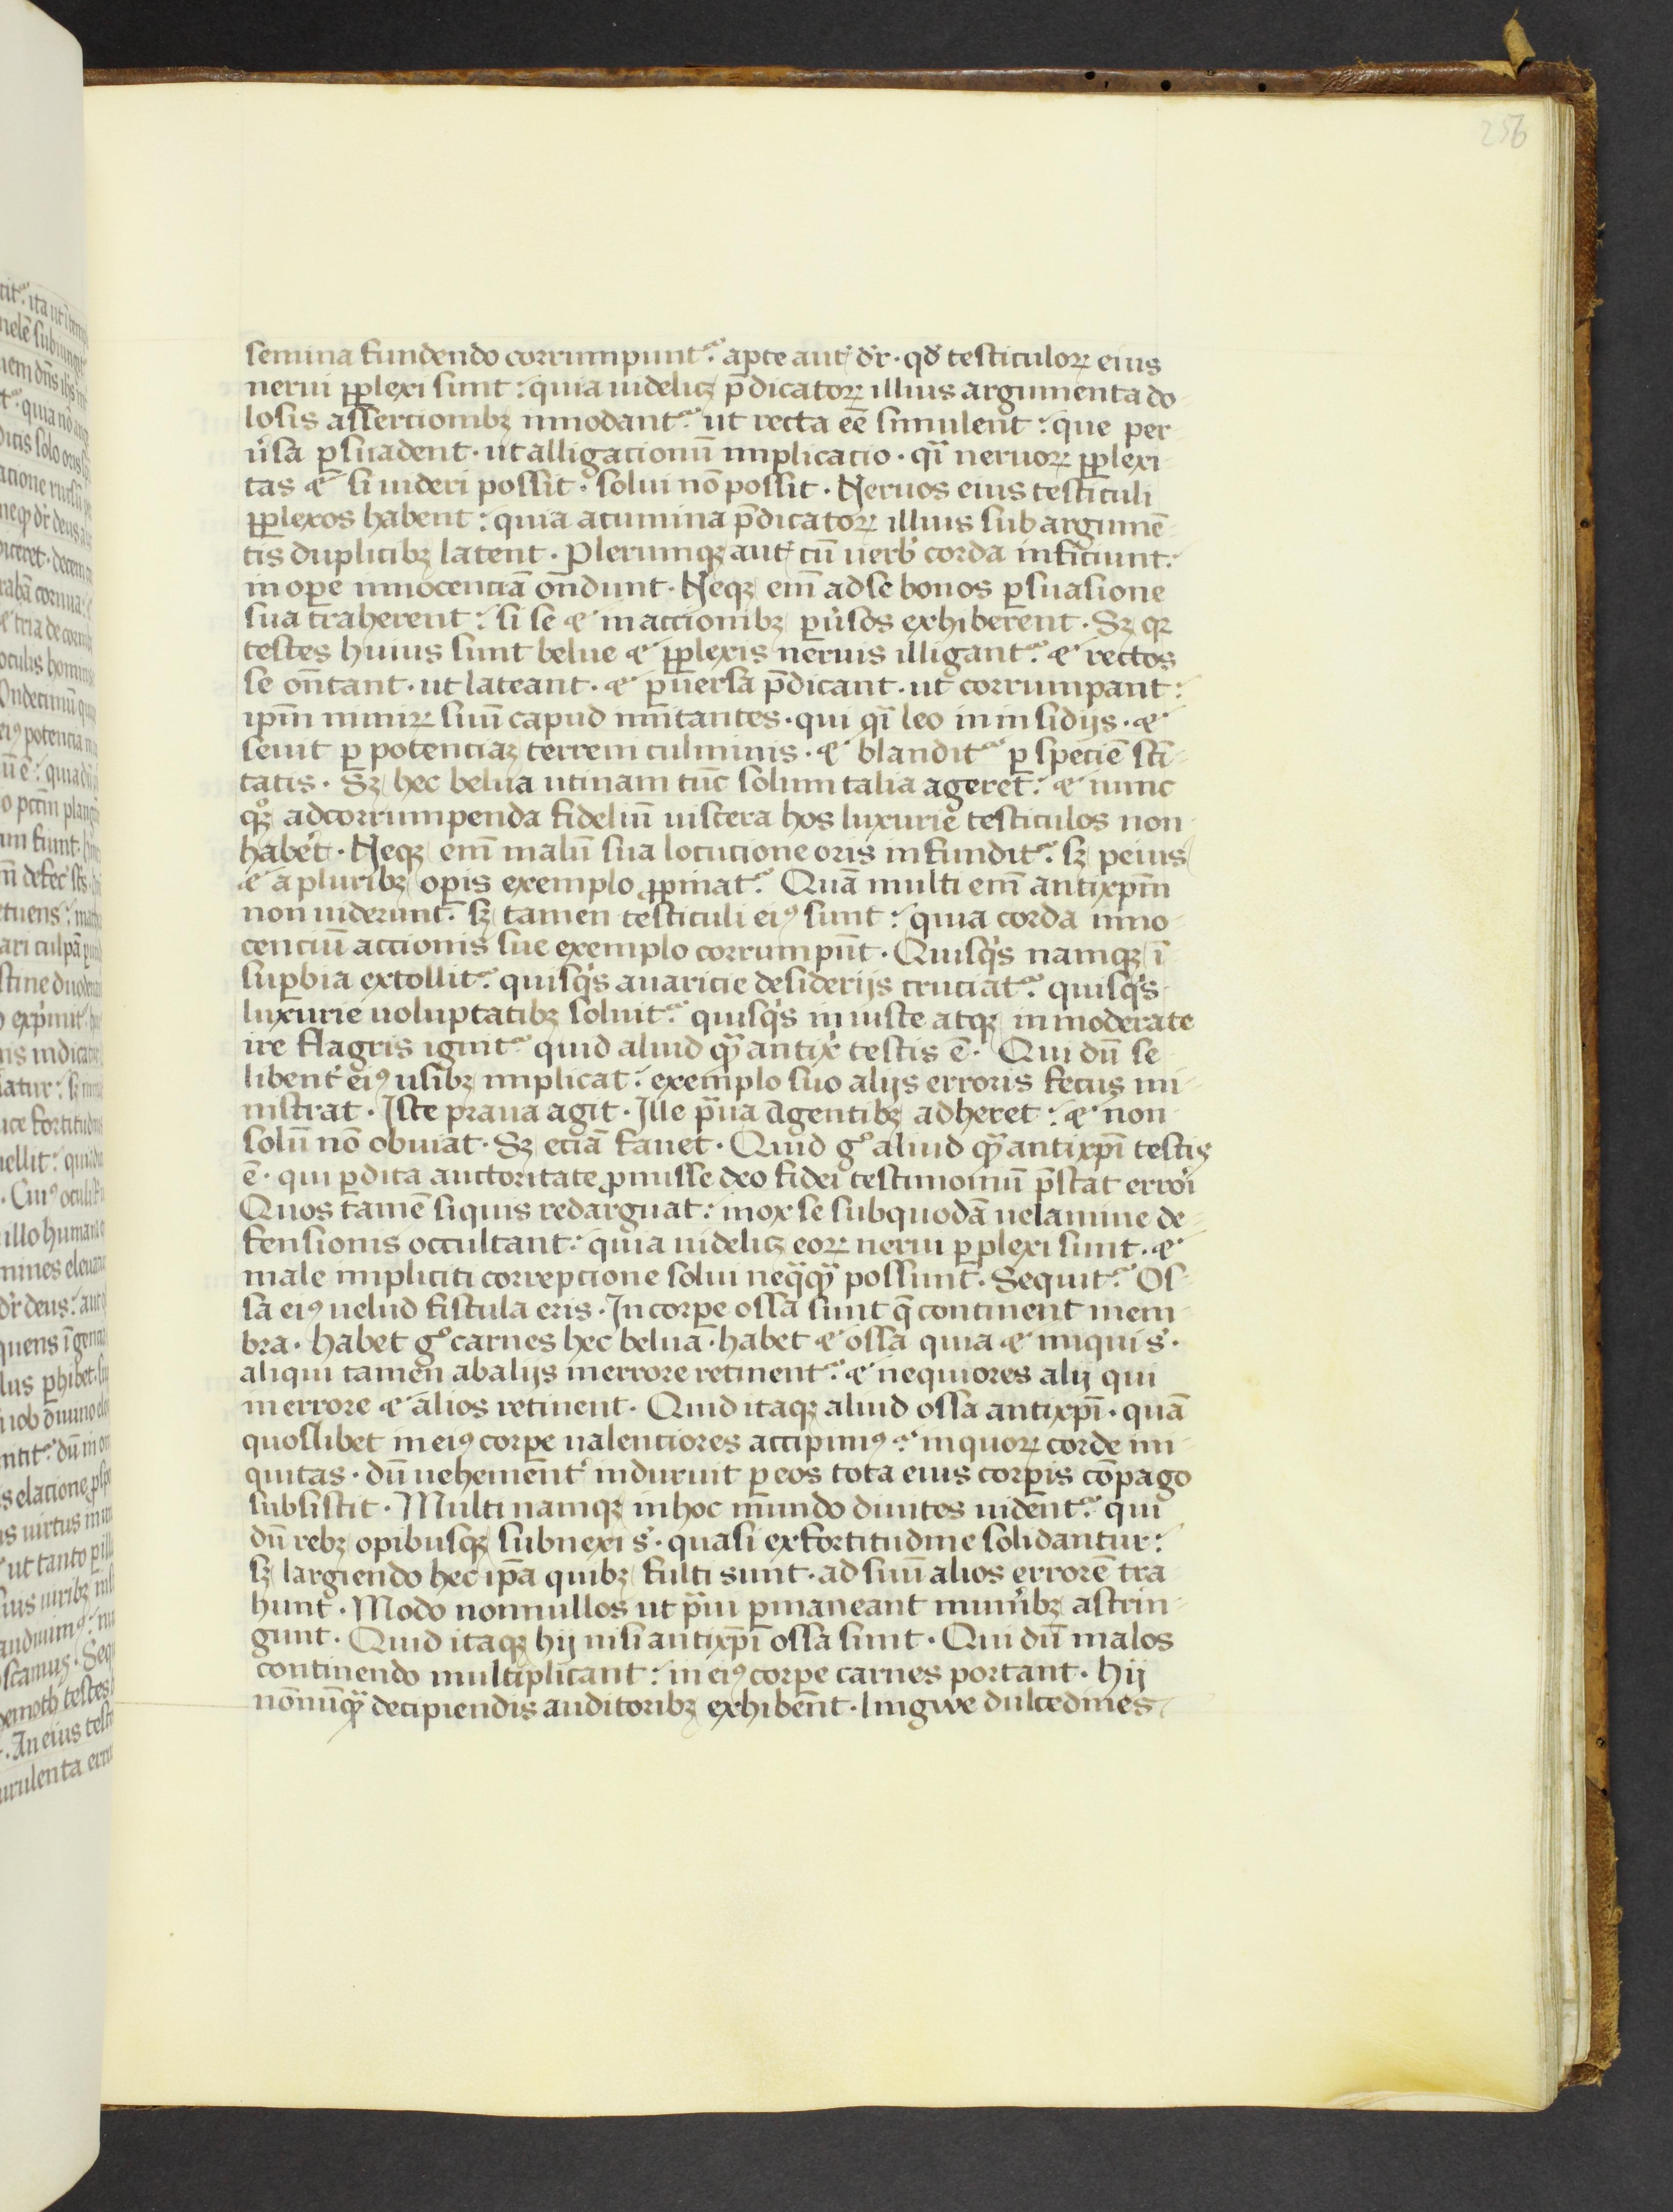 256
semina fundendo corrumpunt᷑. apte aut᷑ dr̄ · qd̄ testiculoꝝ eius
nerui ꝑplexi sunt : quia uidelicꝫ p̄dicatoꝝ illius argumenta do
losis assertionibꝫ innodant᷑. ut recta eē simulent : que per
u̓sa ꝑsuadent · ut alligacionū implicacio · qͣi neruoꝝ ꝑplexi
tas ⁊ si uideri possit · solui nō possit · Neruos eius testiculi
ꝑplexos habent : quia acumina p̄dicatoꝝ illius sub argumē
tis duplicibꝫ latent · Plerumqꝫ aut᷑ cū uerb̓ corda inficiunt :
in oꝑe innocenciā on̄dunt · Neqꝫ em̄ ad se bonos ꝑsuasione
sua traherent : si se ⁊ in accionibꝫ ꝑu̓sos exhiberent · Sꝫ qꝛ
testes huius sunt belue ⁊ ꝑplexis neruis illigant᷑. ⁊ rectos
se on̄tant · ut lateant · ⁊ ꝑuersa p̄dicant · ut corrumpant :
ip̄m nimiꝝ suū capud imitantes · qui qͣi leo in insidijs · ⁊
seuit ꝑ potenciaꝫ terreni culminis · ⁊ blandit᷑ ꝑ speciē sc̄i
tatis · Sꝫ hec belua utinam tūc solum talia ageret : ⁊ nunc
qͦꝫ ad corrumpenda fideliū uiscera hos luxurie testiculos non
habēt · Neqꝫ em̄ malū sua locucione oris infundit᷑. sꝫ peius
⁊ a pluribꝫ oꝑis exemplo ꝓpinat᷑. Quā multi em̄ antixp̄m
non uiderunt. sꝫ tamen testiculi eiꝰ sunt : quia corda inno
cenciū accionis sue exemplo corrumpūt · Quisqͥs namqꝫ ī
suꝑbia extollit᷑. quisqͥs auaricie desiderijs cruciat᷑. quisqͥs
luxurie uoluptatibꝫ soluit᷑. quisqͥs iniuste atqꝫ inmoderate
ire flagris ignit᷑ quid aliud qͣꝫ antix̓ testis ē · Qui dū se
libent̓ eiꝰ usibꝫ implicat : exemplo suo alijs erroris fecus mi
nistrat · Iste praua agit · Ille pͣua agentibꝫ adheret : ⁊ non
solū nō obuiat · Sꝫ eciā fauet · Quid gͦ aliud qͣꝫ antixp̄i testis
ē · qui ꝑdita auctoritate ꝓmisse deo fidei testimoniū p̄stat errori
Quos tamē siquis redarguat : mox se sub quodā uelamine de
fensionis occultant : quia uidelicꝫ eoꝝ nerui ꝑplexi sunt · ⁊
male impliciti correpcione solui neqͣqͣꝫ possunt · Sequit᷑. Os
sa eiꝰ uelud fistula eris · In corꝑe ossa sunt q̄ continent mem
bra · habet gͦ carnes hec belua · habet ⁊ ossa quia ⁊ iniqui s̄ ·
aliqui tamen ab alijs in errore retinent᷑. ⁊ nequiores alij qui
in errore ⁊ alios retinent · Quid itaqꝫ aliud ossa antixp̄i · quā
quoslibet in eiꝰ corꝑe ualenciores accipimꝰ : in quoꝝ corde ini
quitas · dū uehement̓ induruit ꝑ eos tota eius corꝑis cōpago
subsistit · Multi namqꝫ in hoc mundo diuites uident᷑. qui
dū rebꝫ opibusqꝫ subnexi s̄ · quasi ex fortitudine solidantur :
sꝫ largiendo hec ip̄a quibꝫ fulti sunt · ad suū alios errorē tra
hunt · Modo nonnullos ut pͣui ꝑmaneant mun̓ibꝫ astrin
gunt · Quid itaqꝫ hij nisi antixp̄i ossa sunt · Qui dū malos
continendo multiplicant : in eiꝰ corꝑe carnes portant · Hij
nōnūqͣꝫ decipiendis auditoribꝫ exhibent · lingwe dulcedines